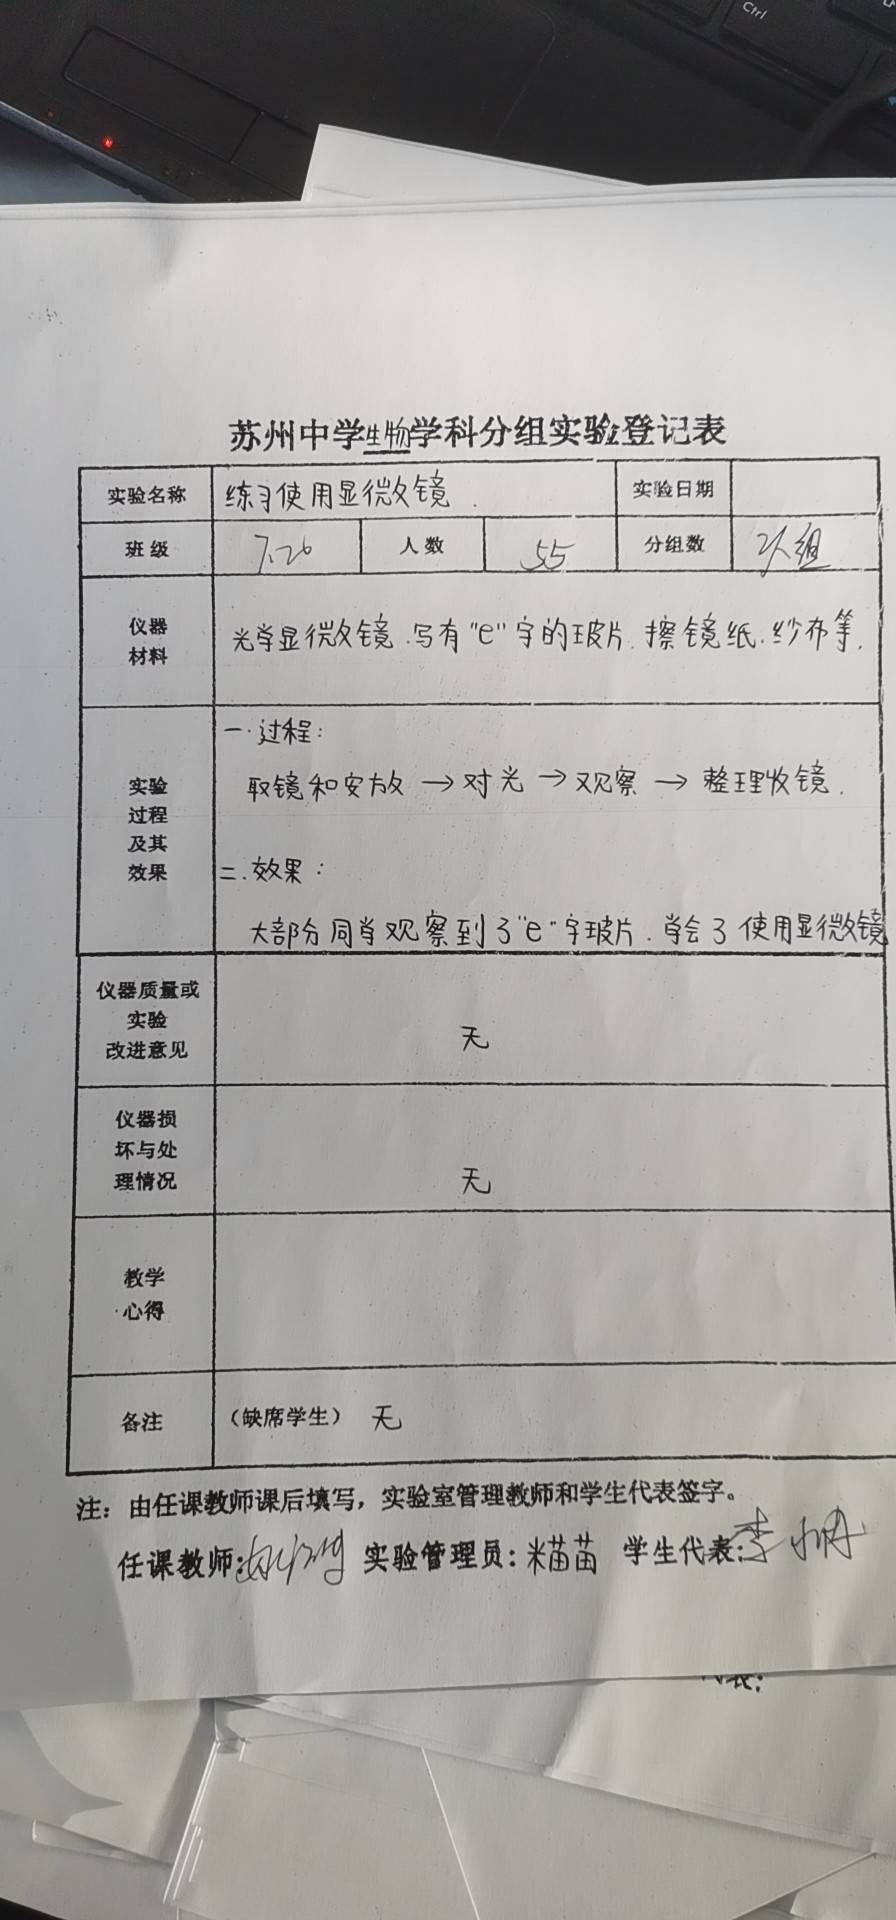 Ctrl
苏州中学生物学科分组实验登记表
实验名称 练习使用显微镜 实验日期
班级 7.26 人数 55 分组数 2人组
仪器
材料
光学显微镜.写有"e"字的玻片.擦镜纸.纱布等.
实验
过程
及其
效果
一.过程:
取镜和安放→对光→观察→整理收镜.
二.效果:
大部分同学观察到了"e"字玻片.学会了使用显微镜
仪器质量或
实验
改进意见
无
仪器损
坏与处
理情况
无
教学
心得
备注 （缺席学生） 无
注：由任课教师课后填写，实验室管理教师和学生代表签字。
任课教师: 实验管理员: 米苗苗 学生代表: 李
代表: